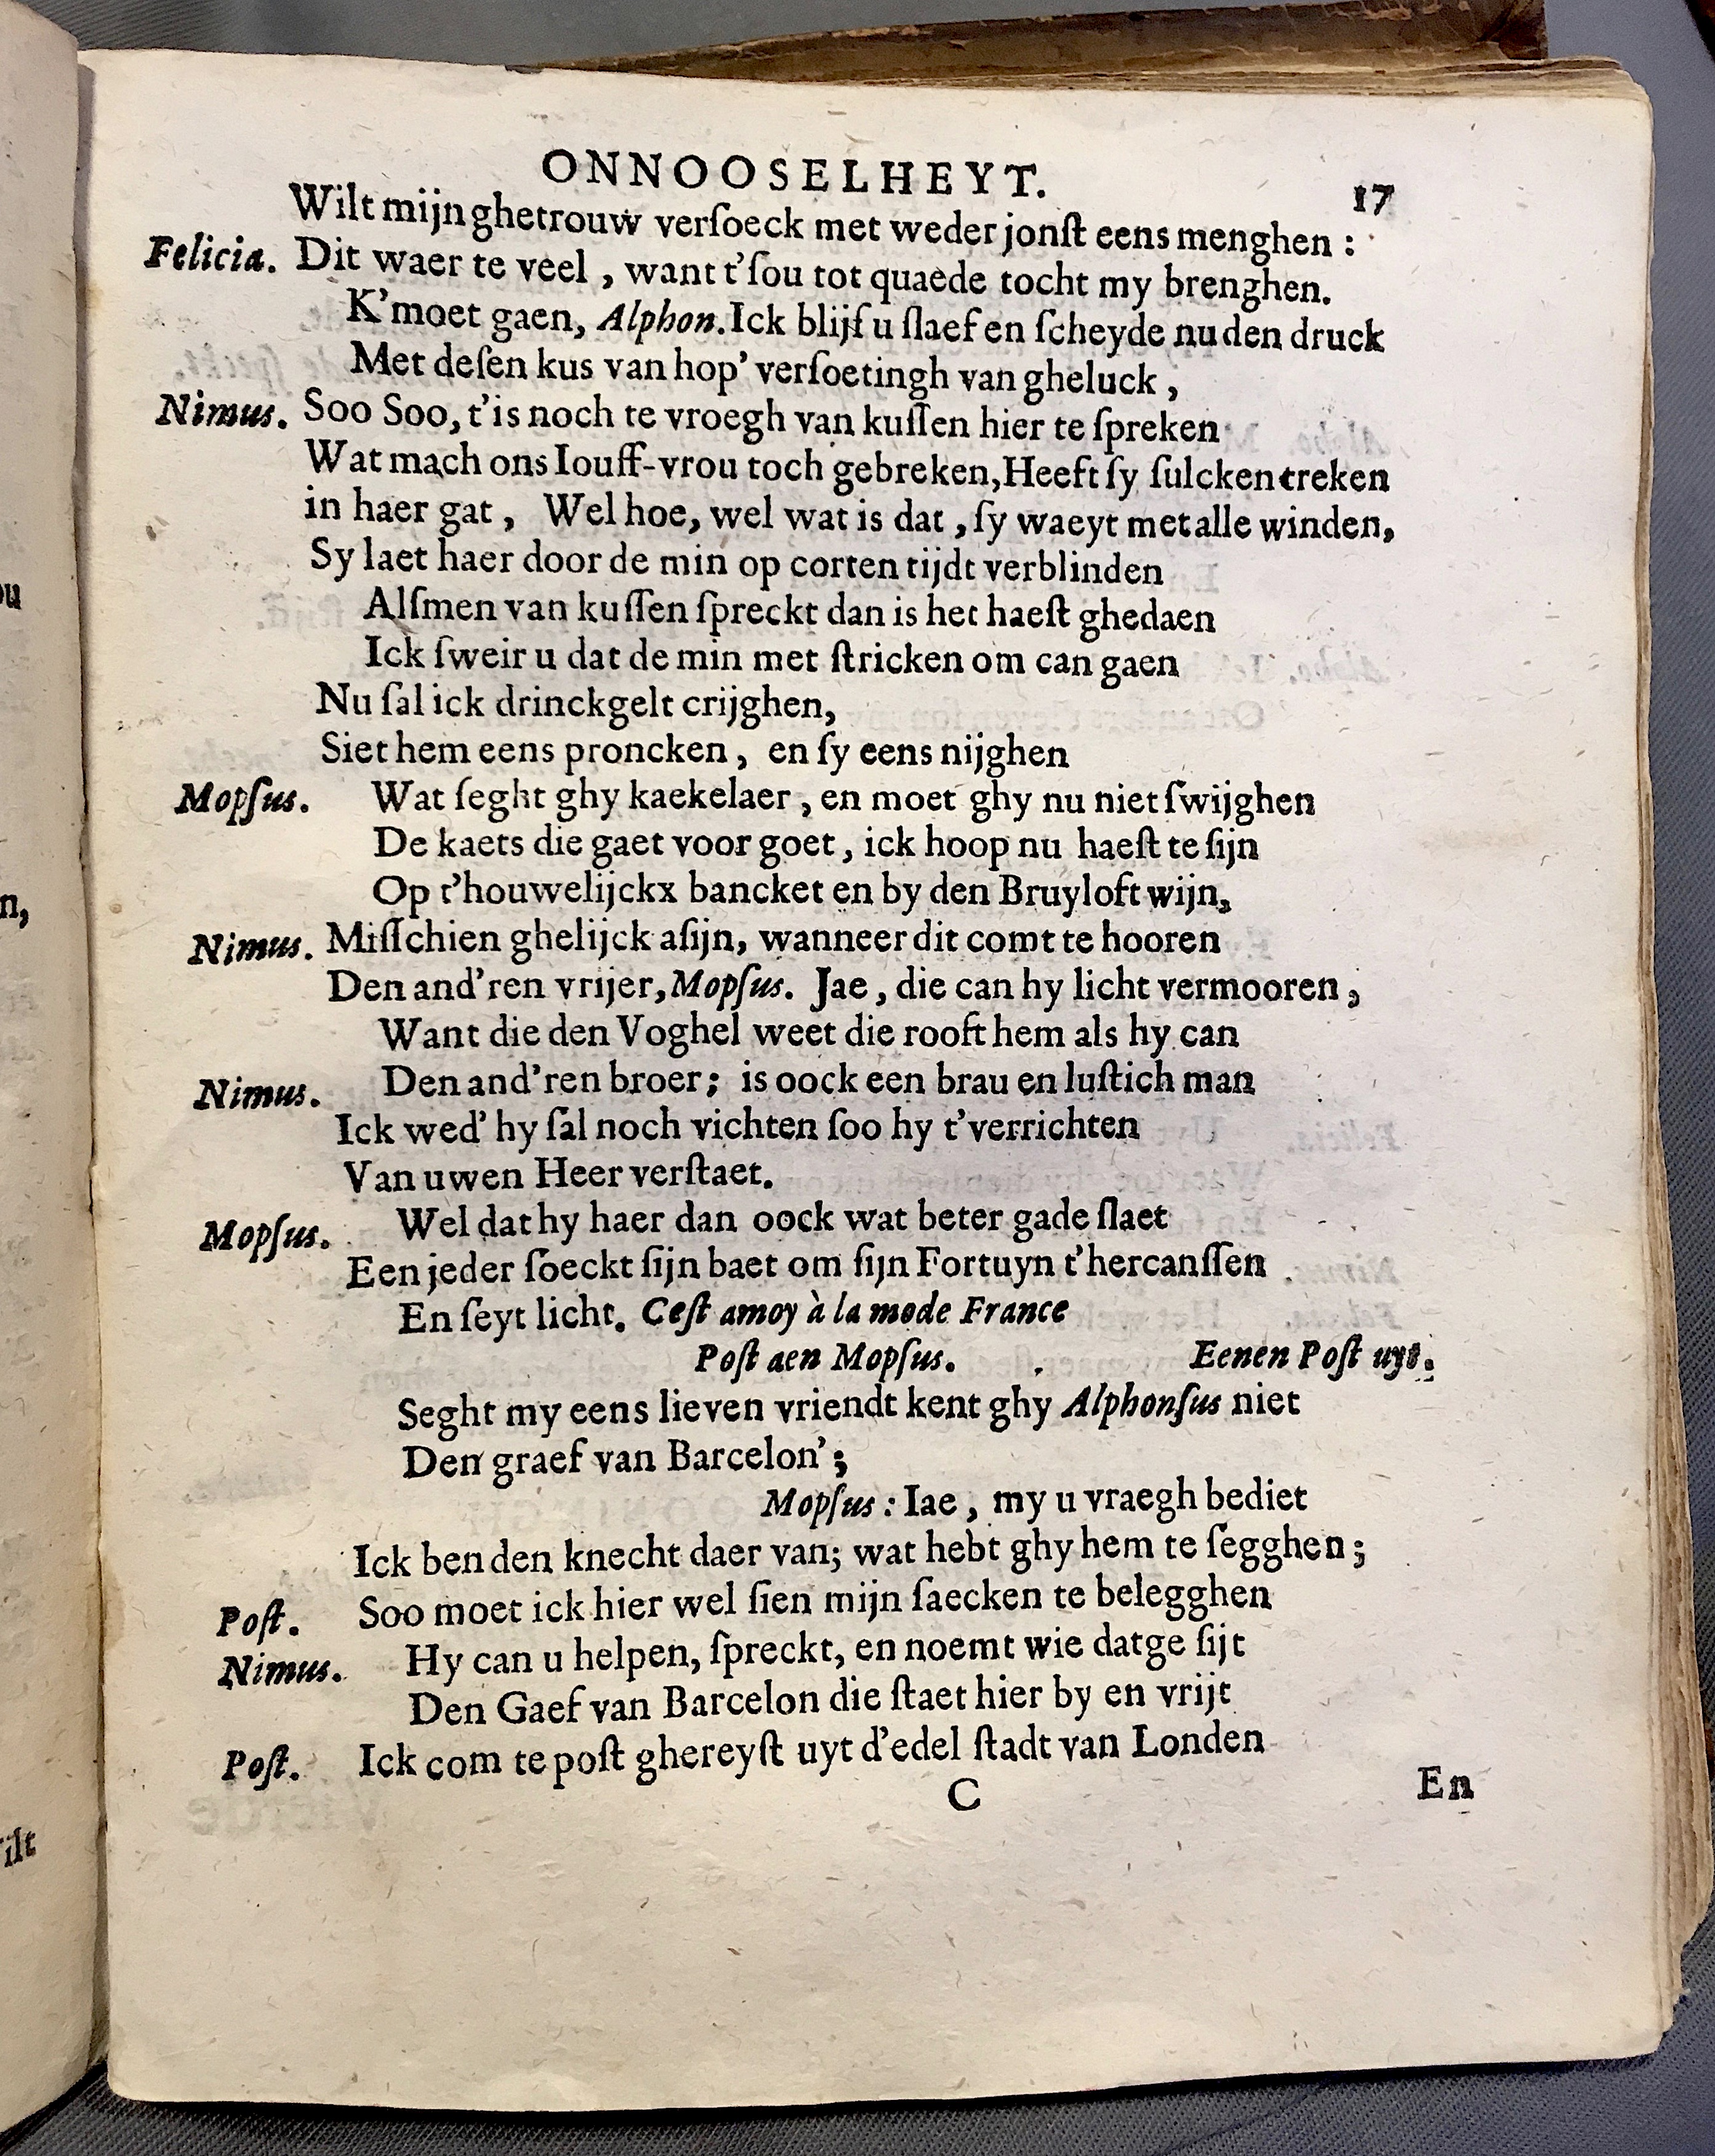 ONNOOSELHEYT. 17
Wilt mijn ghetrouw verſoeck met weder jonſt eens menghen :
Felicia. Dit waer te veel , want t'ſou tot quaede tocht my brenghen.
K'moet gaen, Alphon. Ick blijf u ſlaef en ſcheyde nu den druck
Met deſen kus van hop' verſoetingh van gheluck ,
Nimus. Soo Soo, t'is noch te vroegh van kuſſen hier te ſpreken
Wat mach ons Iouff-vrou toch gebreken, Heeft ſy ſulcken treken
in haer gat , Wel hoe, wel wat is dat , ſy waeyt met alle winden,
Sy laet haer door de min op corten tijdt verblinden
Alſmen van kuſſen ſpreckt dan is het haeſt ghedaen
Ick ſweir u dat de min met ſtricken om can gaen
Nu ſal ick drinckgelt crijghen,
Siet hem eens proncken , en ſy eens nijghen
Mopſus. Wat ſeght ghy kaekelaer , en moet ghy nu niet ſwijghen
De kaets die gaet voor goet , ick hoop nu haeſt te ſijn
Op t'houwelijckx bancket en by den Bruyloft wijn,
Nimus. Miſſchien ghelijck aſijn, wanneer dit comt te hooren
Den and'ren vrijer, Mopſus. Jae , die can hy licht vermooren ,
Want die den Voghel weet die rooft hem als hy can
Nimus. Den and'ren broer; is oock een brau en luſtich man
Ick wed' hy ſal noch vichten ſoo hy t'verrichten
Van uwen Heer verſtaet.
Mopſus. Wel dat hy haer dan oock wat beter gade ſlaet
Een jeder ſoeckt ſijn baet om ſijn Fortuyn t'hercanſſen
En ſeyt licht. Ceſt amoy à la mode France
Poſt aen Mopſus. Eenen Poſt uyt.
Seght my eens lieven vriendt kent ghy Alphonſus niet
Den graef van Barcelon' ;
Mopſus : Iae , my u vraegh bediet
Ick ben den knecht daer van; wat hebt ghy hem te ſegghen ;
Poſt. Soo moet ick hier wel ſien mijn ſaecken te belegghen
Nimus. Hy can u helpen, ſpreckt, en noemt wie datge ſijt
Den Gaef van Barcelon die ſtaet hier by en vrijt
Poſt. Ick com te poſt ghereyſt uyt d'edel ſtadt van Londen
C En
ou
n,
ilt